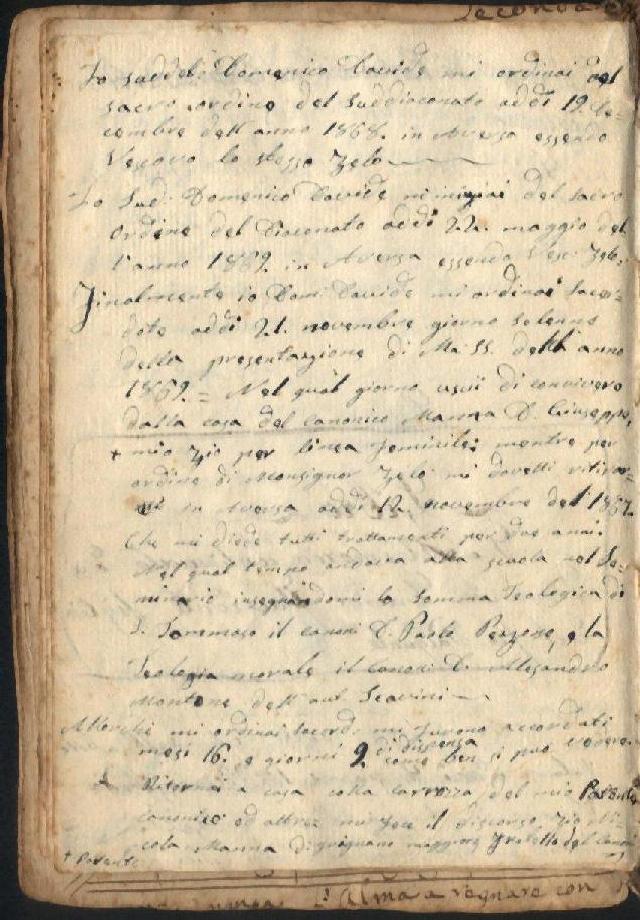 Seconda
Io suddetto Domenico Davide mi ordinai del
sacro ordine del Suddiaconato addì 19. De=
cembre dell'anno 1868. in Aversa essendo
Vescovo lo stesso Zelo
Io Sud. Domenico Davide mi iniziai del sacro
Ordine del Diaconato addì 22. maggio del
l'anno 1869. in Aversa essendo Vesc. Zelo.
Finalmente io Dom. Davide mi ordinai Sacer=
dote addì 21. novembre giorno solenne
della presentazione di Ma SS. dell'anno
1869. = Nel qual giorno uscii di convivere
dalla casa del canonico Manna D. Giuseppe,
+ mio zio per linea feminile; mentre per
ordine di Monsignor Zelo mi dovetti ritirar=
mi in Aversa addì 12. novembre del 1867.
Che mi diede tutti trattamenti per due anni.
Nel qual tempo andava alla scuola nel Se=
minario insegnandomi la Somma Teologica di
S. Tommaso il canoni D. Paolo e la
Teologia morale il canoni D. Alesandro
Montone dell'aut. Scavini
Allorchè mi ordinai Sacerd. mi furono accordati
mesi 16. e giorni 9. di dispensa come ben si può vedere.
Ritornai a casa colla carrozza del mio Parente
canonico ed altresì mi fece il discorso zio Ni
cola Manna di grignano maggiore fratello del Canon
+ Parente
L'Alma a regnare con